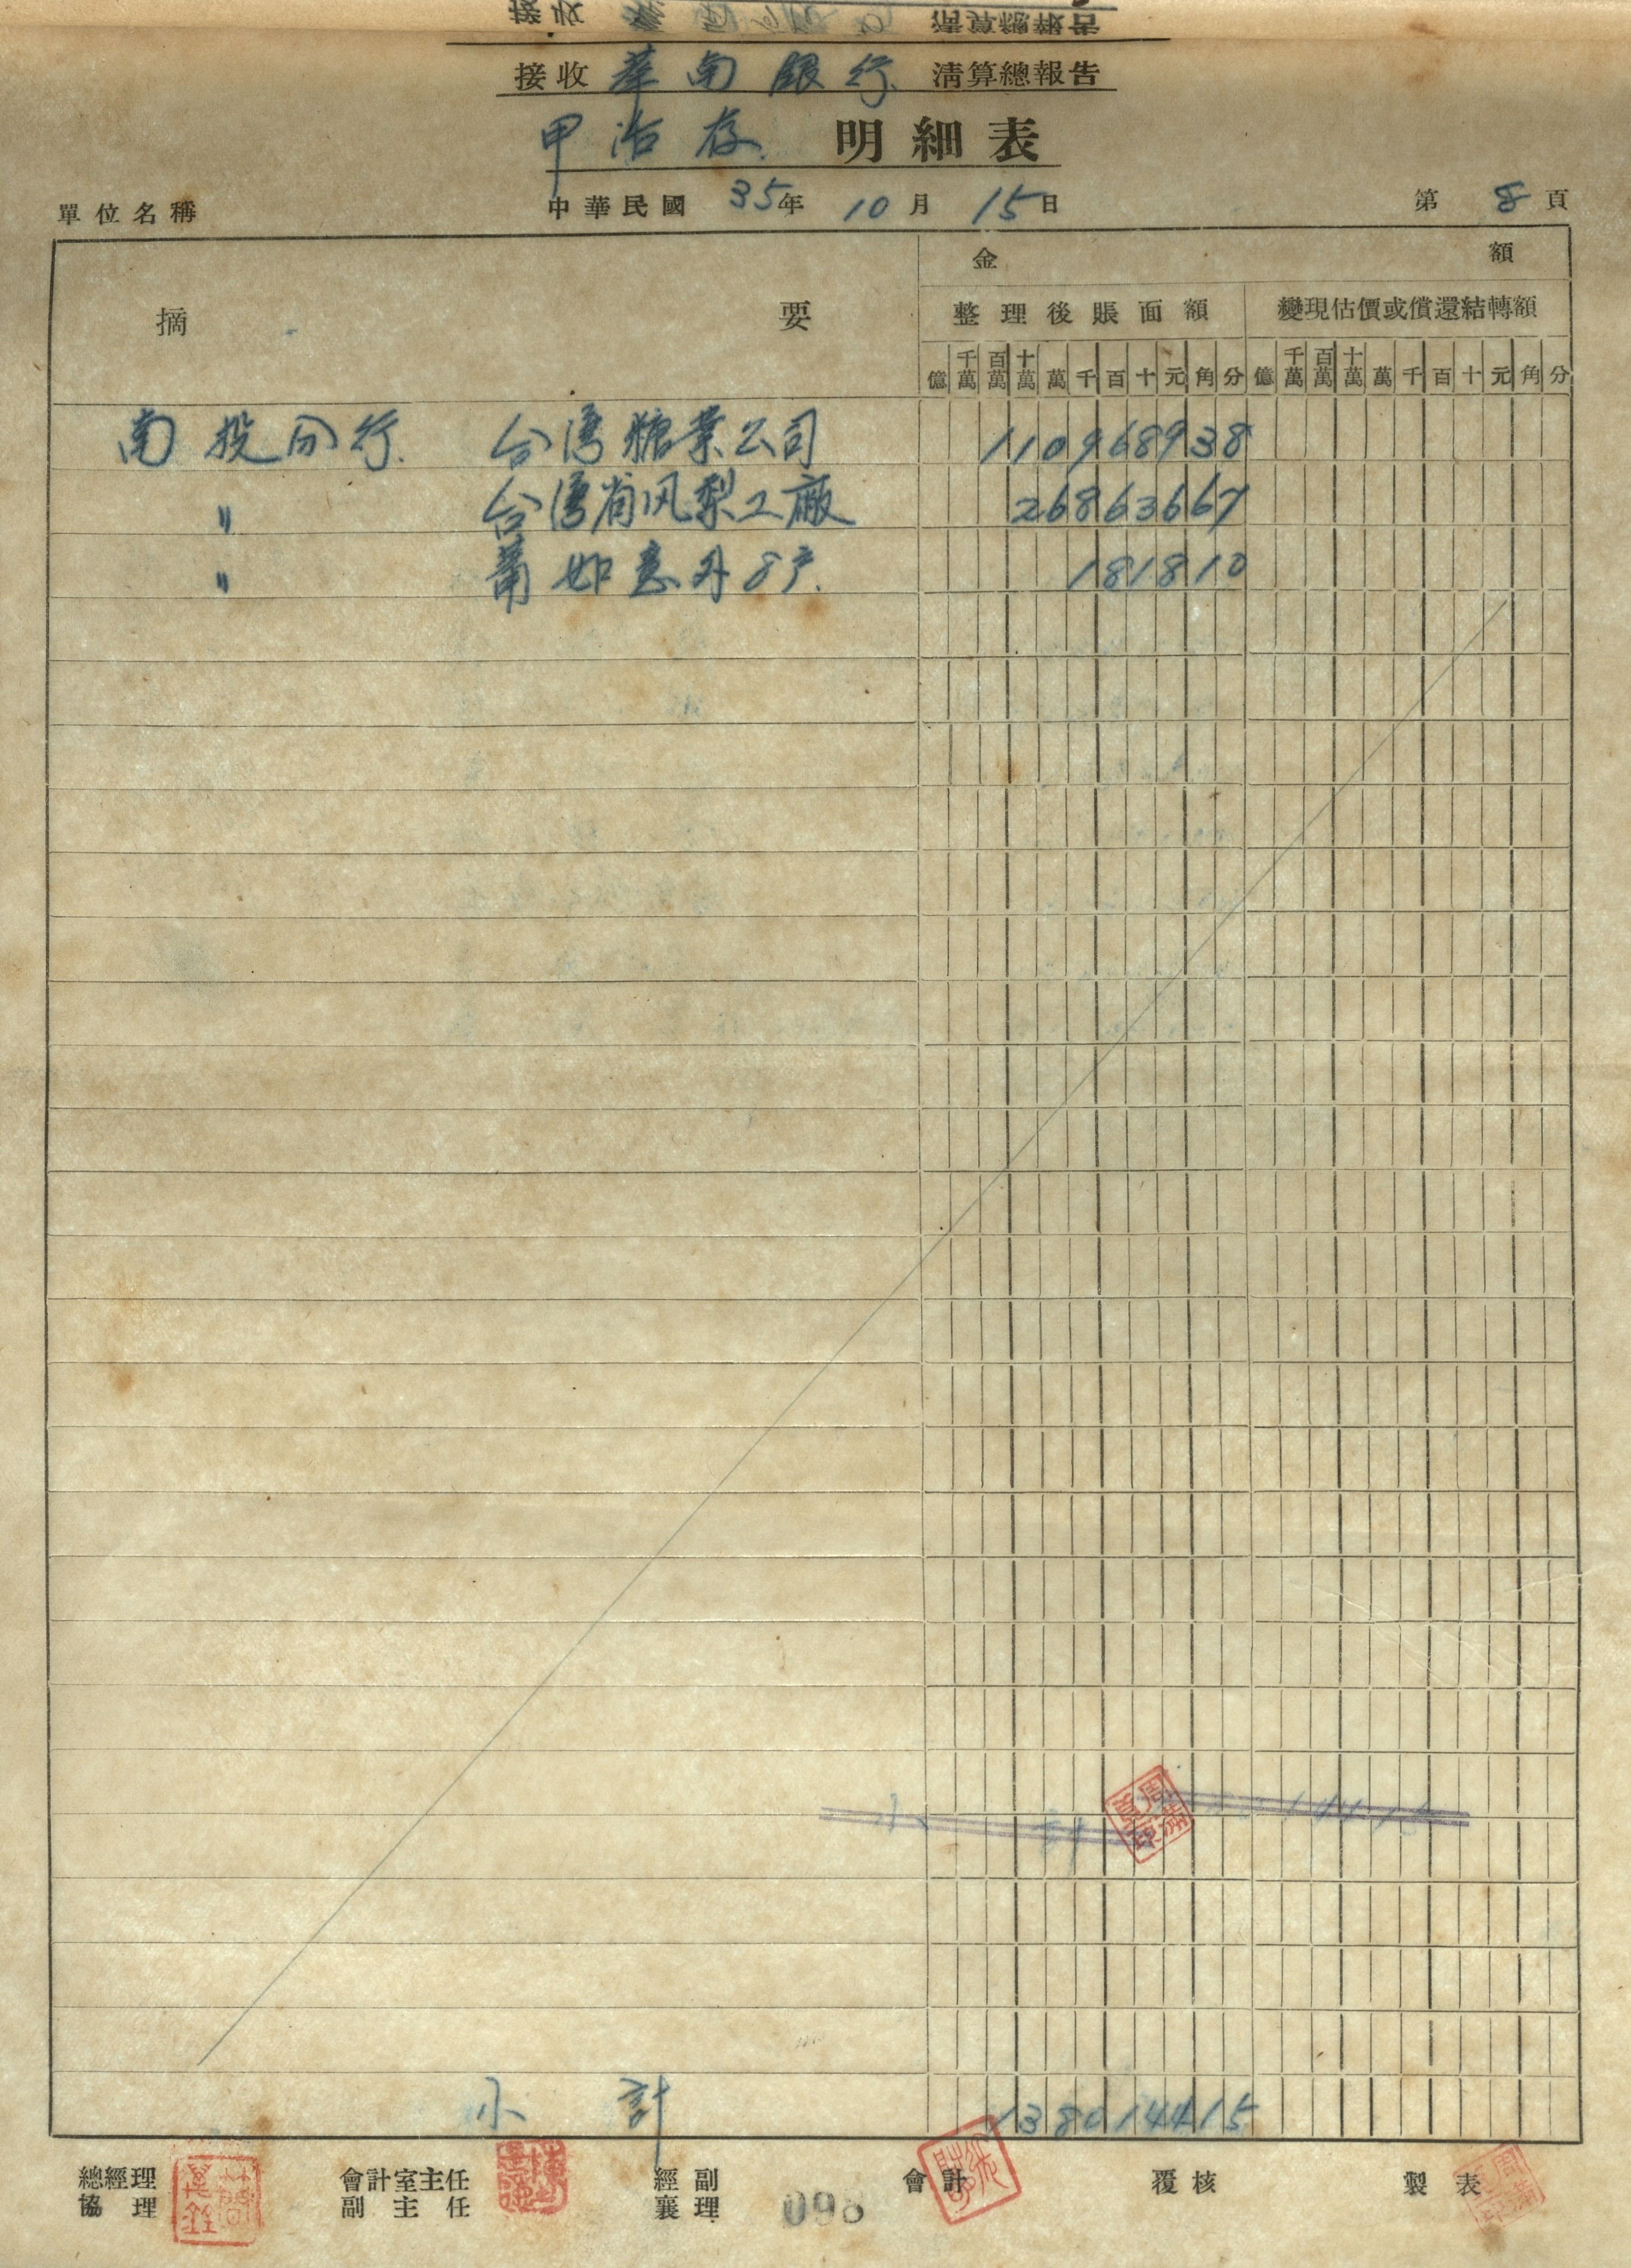 接收 華南銀行 清算總報告
甲活存 明細表
單位名稱 中華民國 35年 10月 15日 第 8 頁
摘 要 金 額
整理後賬面額 變現估價或償還結轉額
億 千萬 百萬 十萬 萬 千 百 十 元 角 分 億 千萬 百萬 十萬 萬 千 百 十 元 角 分
南投分行 台湾糖業公司 110968938
〃 台湾省凤梨工廠 26863667
〃 如意外8户 181810
小計
小計 138014415
總經理 會計室主任 經副 會計 覆核 製表
協理 副主任 襄理
098